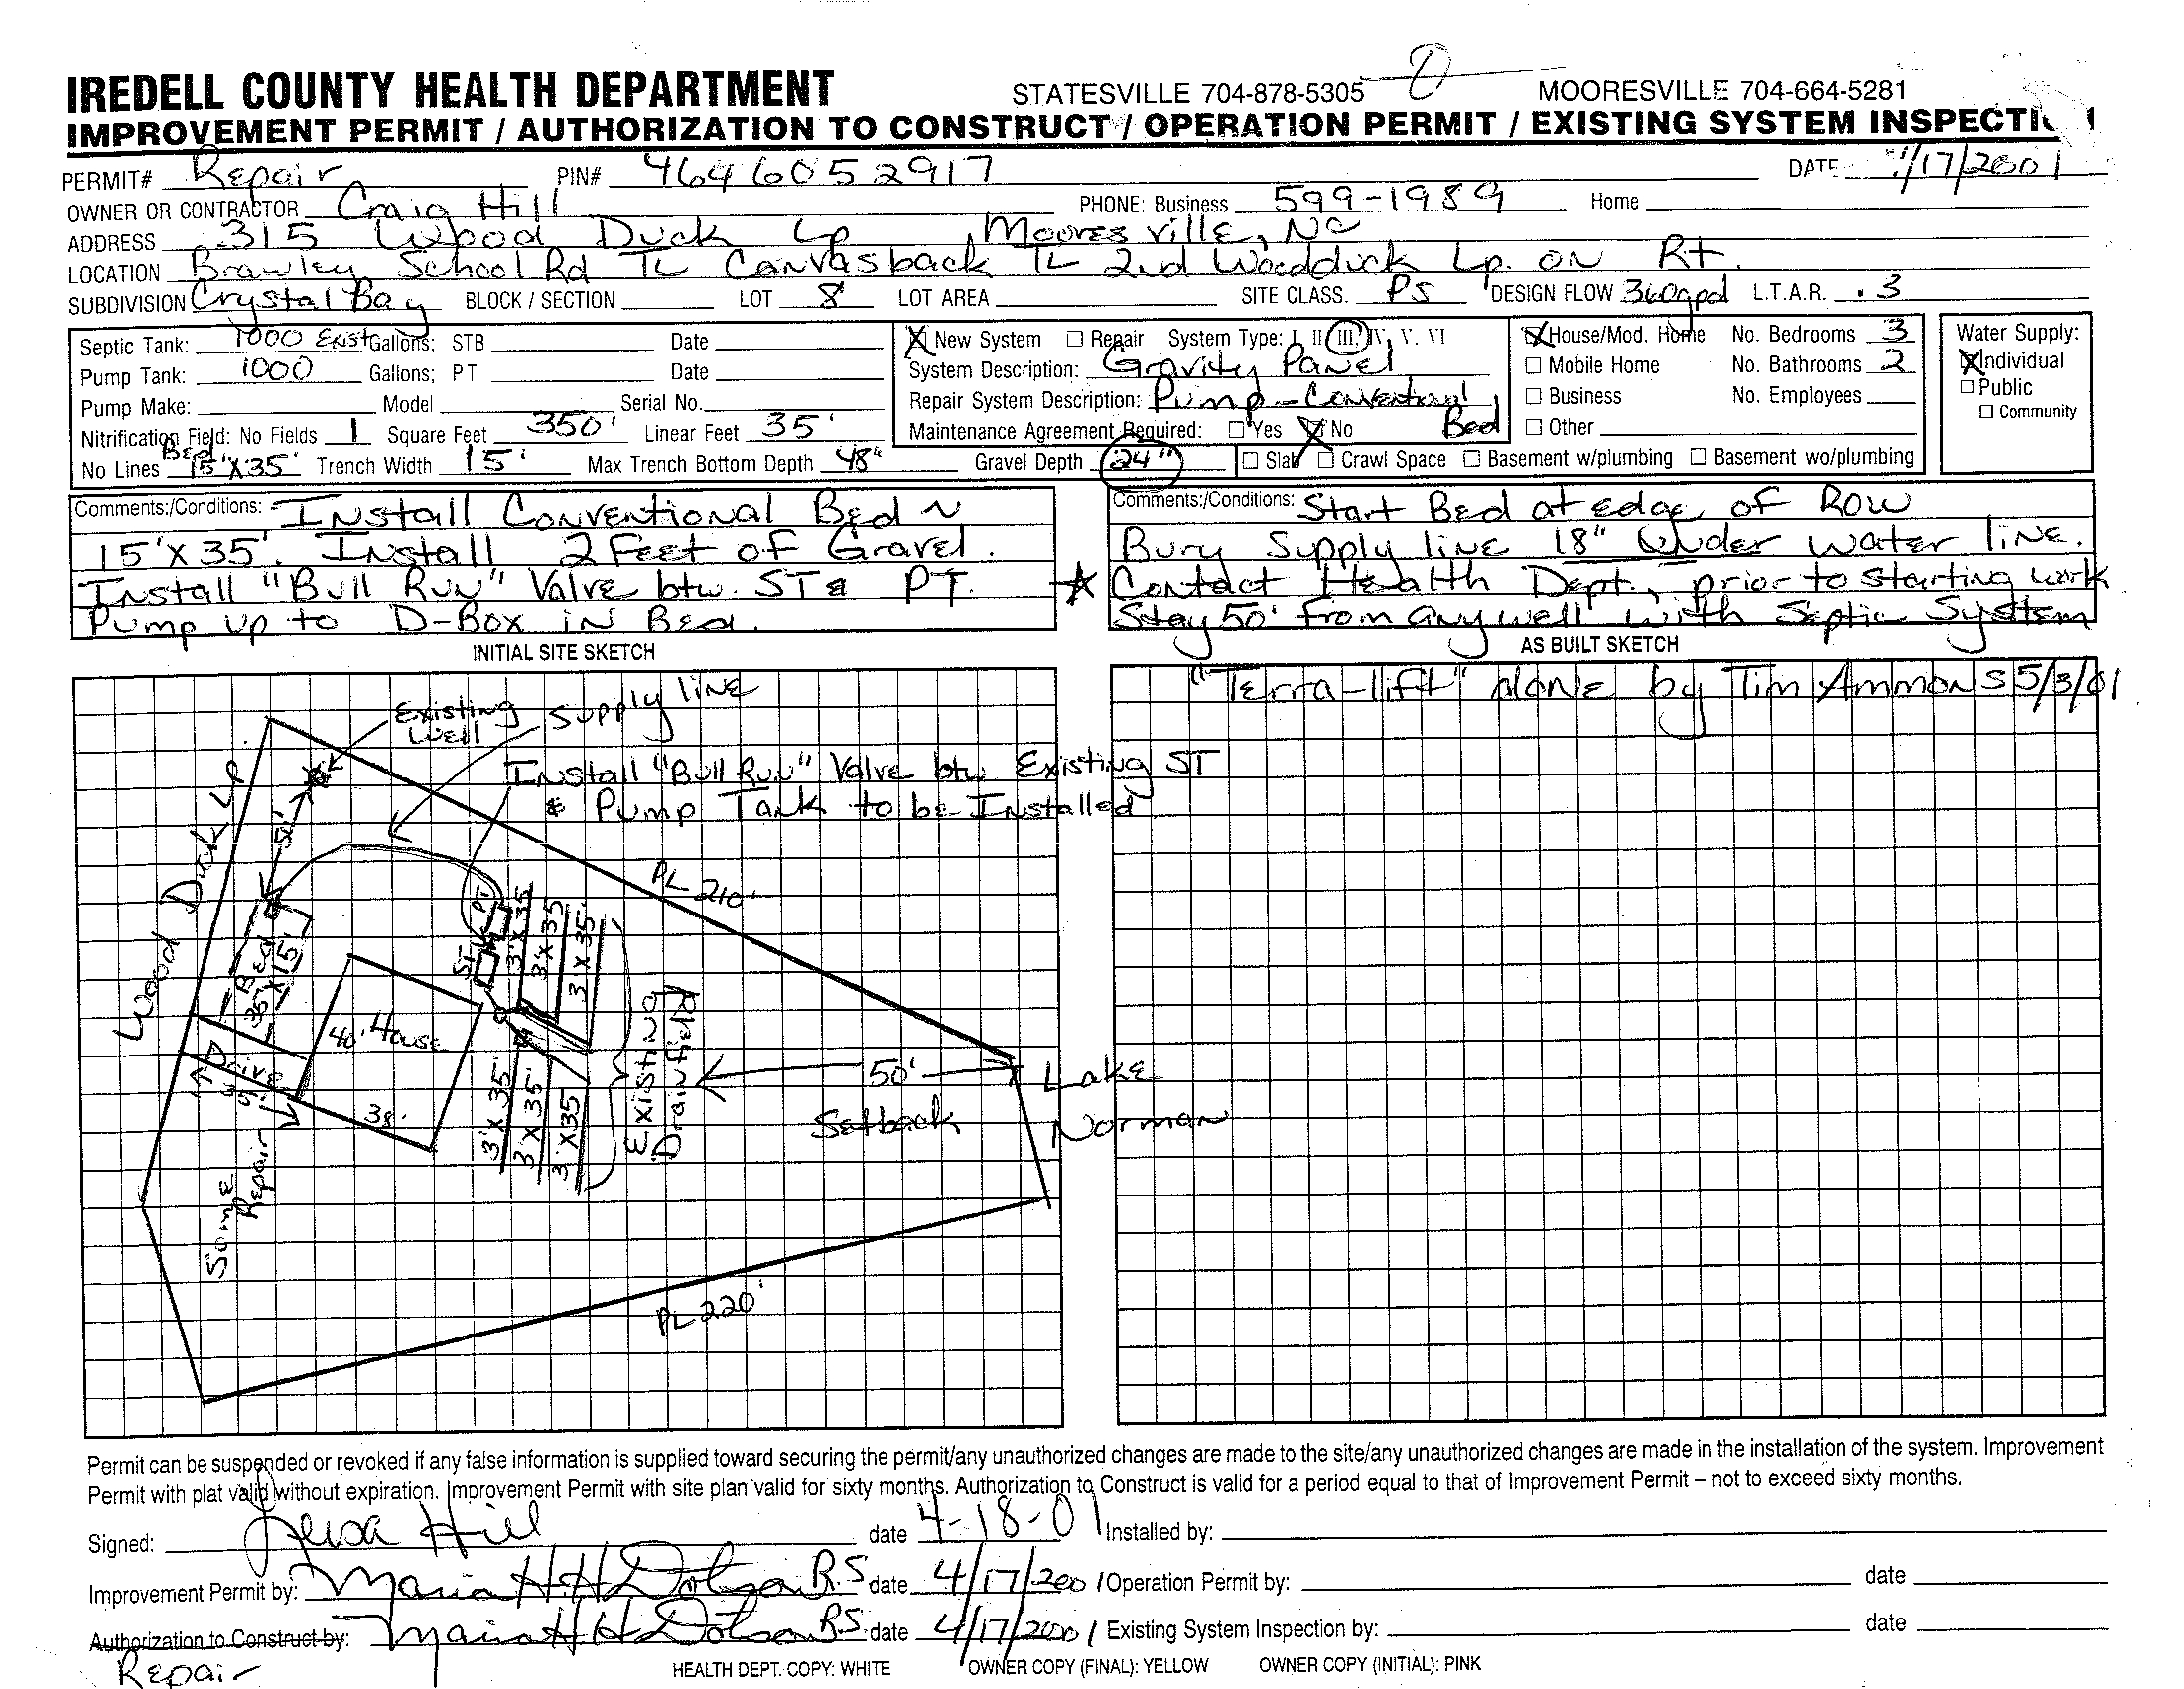 IREDELL COUNTY HEALTH DEPARTMENT STATESVILLE 704-878-5305 MOORESVILLE 704-664-5281
IMPROVEMENT PERMIT / AUTHORIZATION TO CONSTRUCT / OPERATION PERMIT / EXISTING SYSTEM
PERMIT# Repair PIN# 4646052917 DATE /17/2001
OWNER OR CONTRACTOR Craig Hill PHONE: Business 599-1989 Home
ADDRESS 315 Wood Duck Lp, Mooresville, NC
LOCATION Brawley School Rd TL Canvasback TL 2nd Woodduck Lp. on Rt.
SUBDIVISION Crystal Bay BLOCK / SECTION LOT 8 LOT AREA SITE CLASS. PS DESIGN FLOW 360gpd L.T.A.R. .3
Septic Tank: 1000 Exist Gallons; STB Date
Pump Tank: 1000 Gallons; PT Date
Pump Make: Model Serial No.
Nitrification Field: No Fields 1 Square Feet 350' Linear Feet 35'
No Lines Bed 15'X35' Trench Width 15' Max Trench Bottom Depth 48" Gravel Depth 24"
X New System Repair System Type: I, II, III, IV, V. VI
System Description: Gravity Panel
Repair System Description: Pump-Conventional Bed
Maintenance Agreement Required: Yes X No
X House/Mod. Home No. Bedrooms 3
Mobile Home No. Bathrooms 2
Business No. Employees
Other
Slab Crawl Space Basement w/plumbing Basement wo/plumbing
Water Supply:
X Individual
Public
Community
Comments:/Conditions: Install Conventional Bed ~
15'X35'. Install 2 Feet of Gravel.
Install "Bull Run" Valve btw. ST & PT.
Pump up to D-Box in Bed.
Comments:/Conditions: Start Bed at edge of ROW
Bury Supply line 18" Under water line.
★ Contact Health Dept., prior to starting work
Stay 50' from any well with Septic System
INITIAL SITE SKETCH
Existing well
Supply line
Install "Bull Run" Valve btw Existing ST
& Pump Tank to be Installed
Wood Duck Lp
50'
PL 210'
Bed
35'X15'
ST
PT
3'X35'
3'X35'
3'X35'
40' House
38'
Drive
3'X35'
3'X35'
3'X35'
Existing
Drainfield
50'
Setback
Lake
Norman
Some
Repair
PL 220'
AS BUILT SKETCH
"Terra-lift" done by Tim Ammons 5/3/01
Permit can be suspended or revoked if any false information is supplied toward securing the permit/any unauthorized changes are made to the site/any unauthorized changes are made in the installation of the system. Improvement
Permit with plat valid without expiration. Improvement Permit with site plan valid for sixty months. Authorization to Construct is valid for a period equal to that of Improvement Permit – not to exceed sixty months.
Signed: Hill date 4-18-01 Installed by:
Improvement Permit by: Maria H H Dotson R.S. date 4/17/2001 Operation Permit by: date
Authorization to Construct by: Maria H H Dotson R.S. date 4/17/2001 Existing System Inspection by: date
Repair
HEALTH DEPT. COPY: WHITE OWNER COPY (FINAL): YELLOW OWNER COPY (INITIAL): PINK